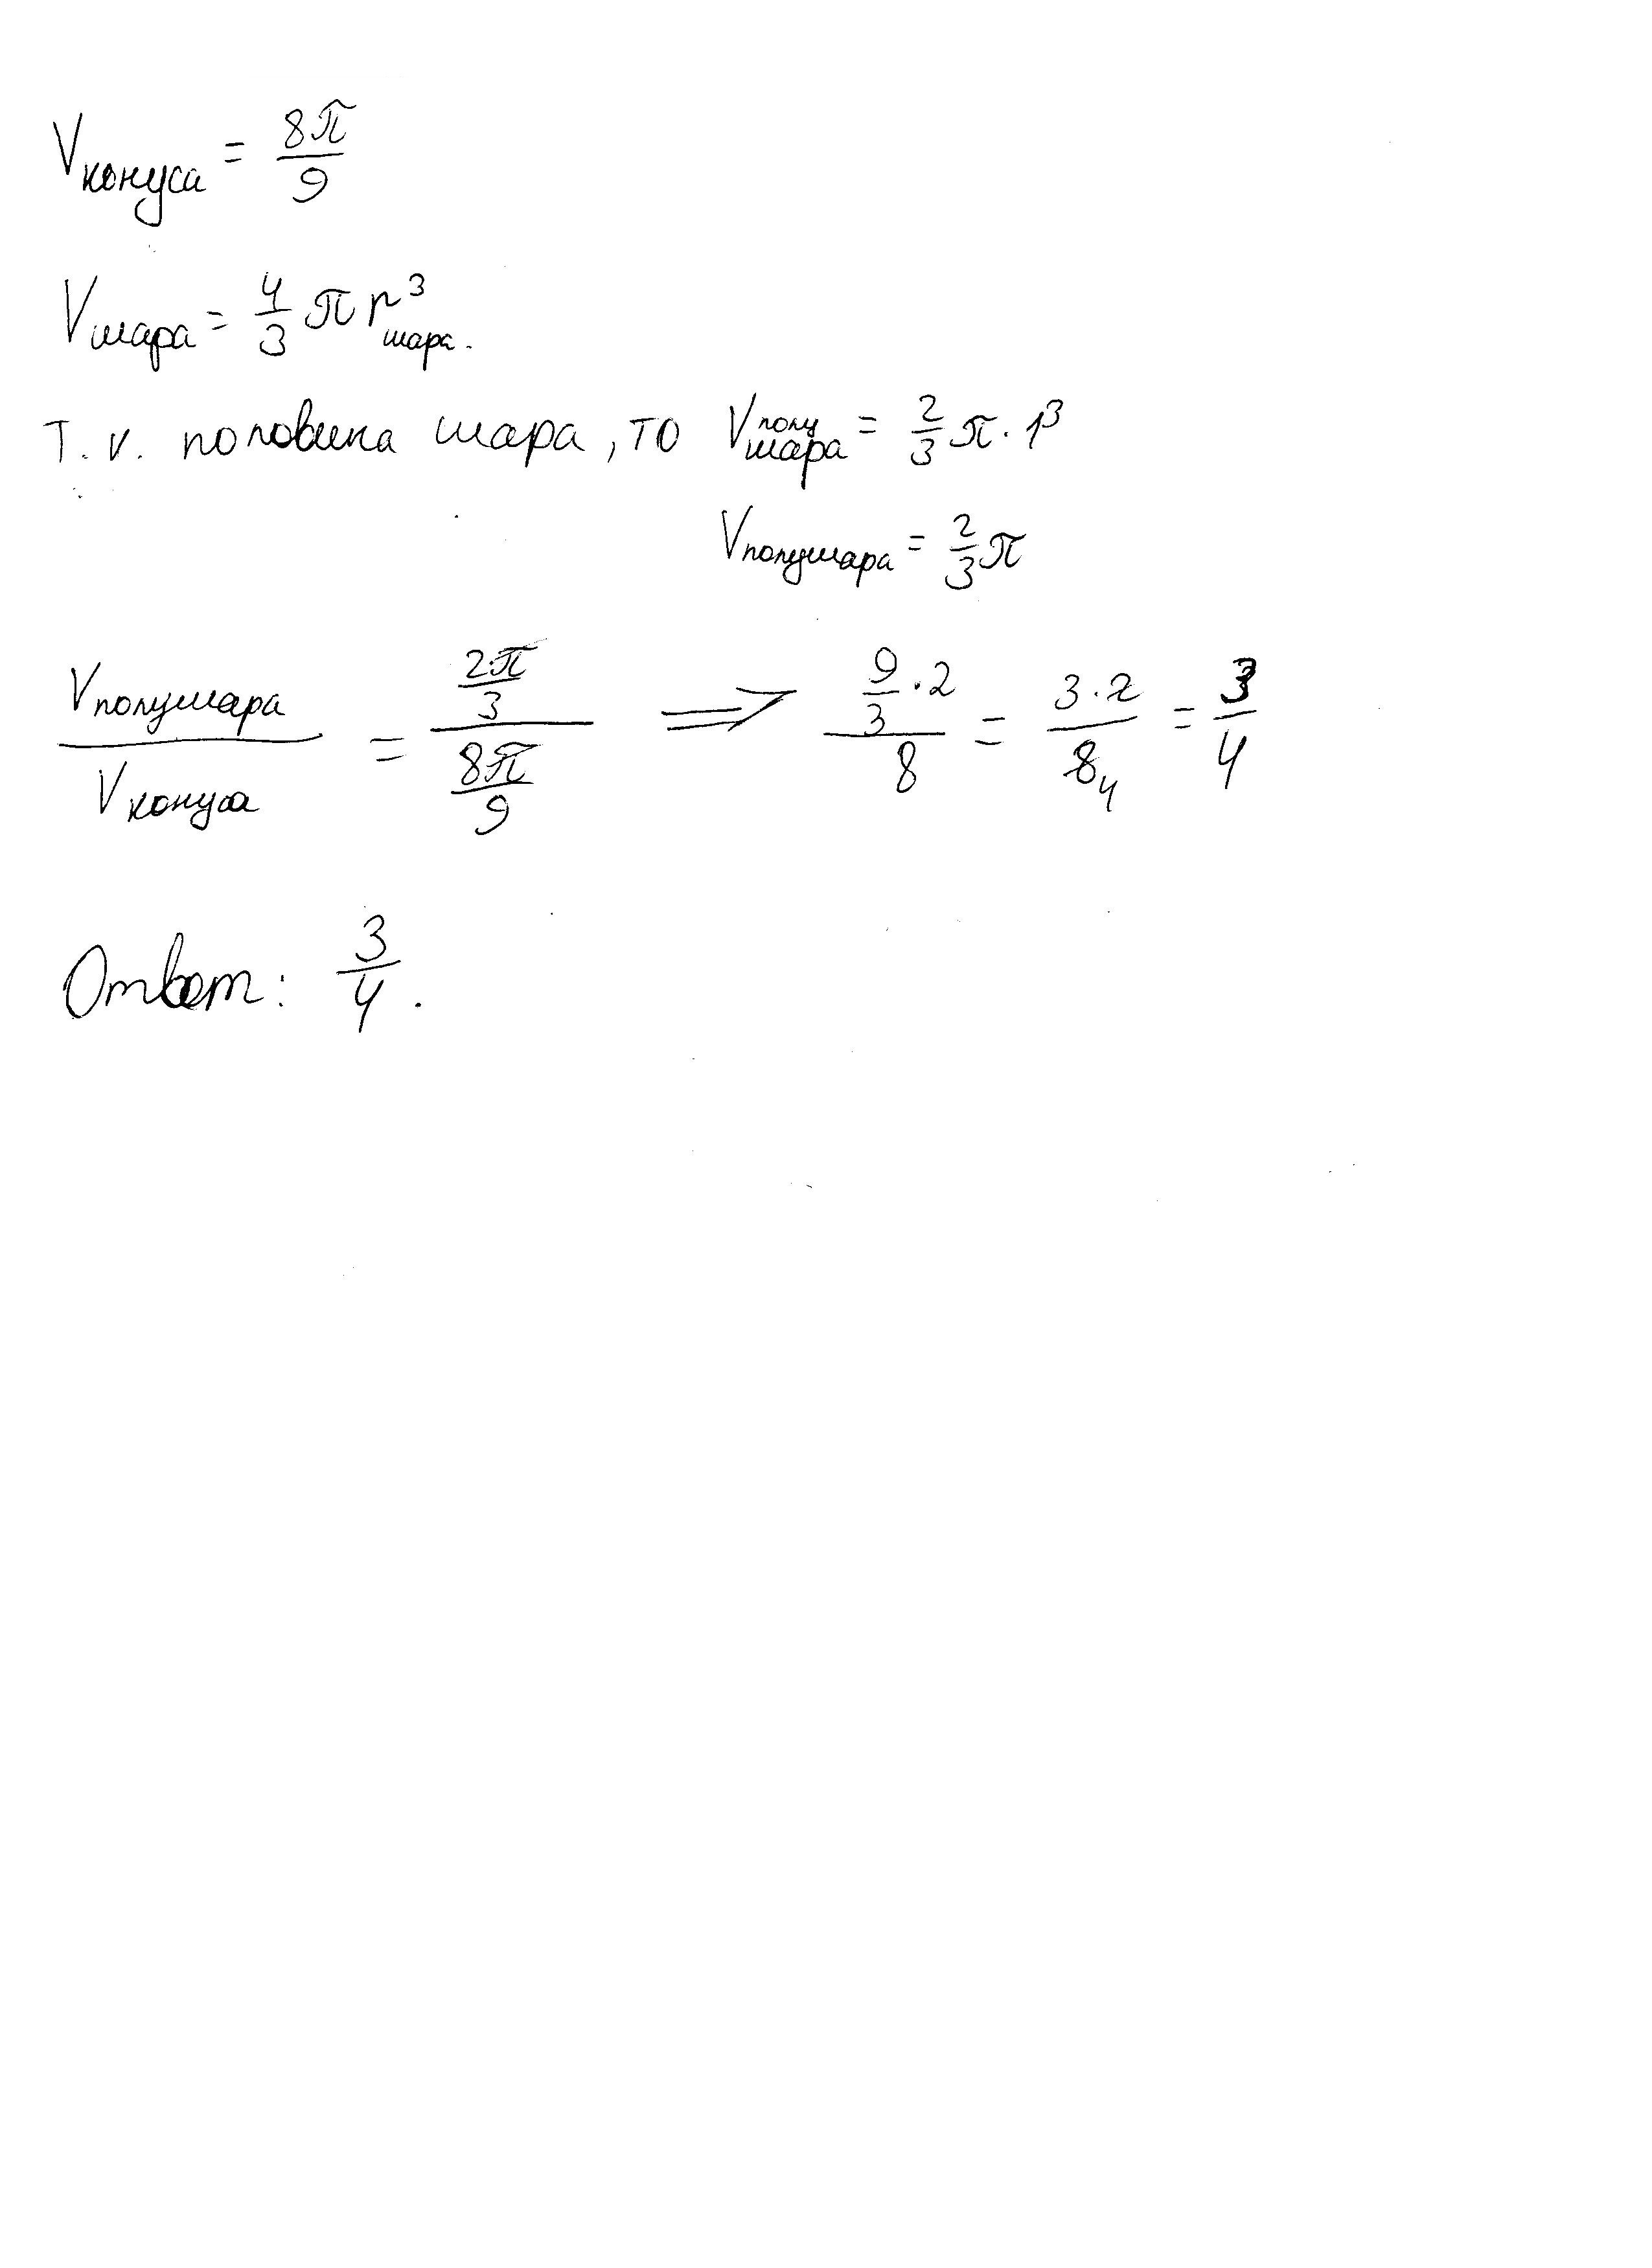 V конуса = 8π/9
V шара = 4/3 π r³ шара.
Т. к. половина шара, то V полушара = 2/3 π · 1³
V полушара = 2/3 π
V полушара / V конуса = (2π/3) / (8π/9) ⟹ (9/3 · 2) / 8 = (3 · 2) / 8 4 = 3/4
Ответ: 3/4.